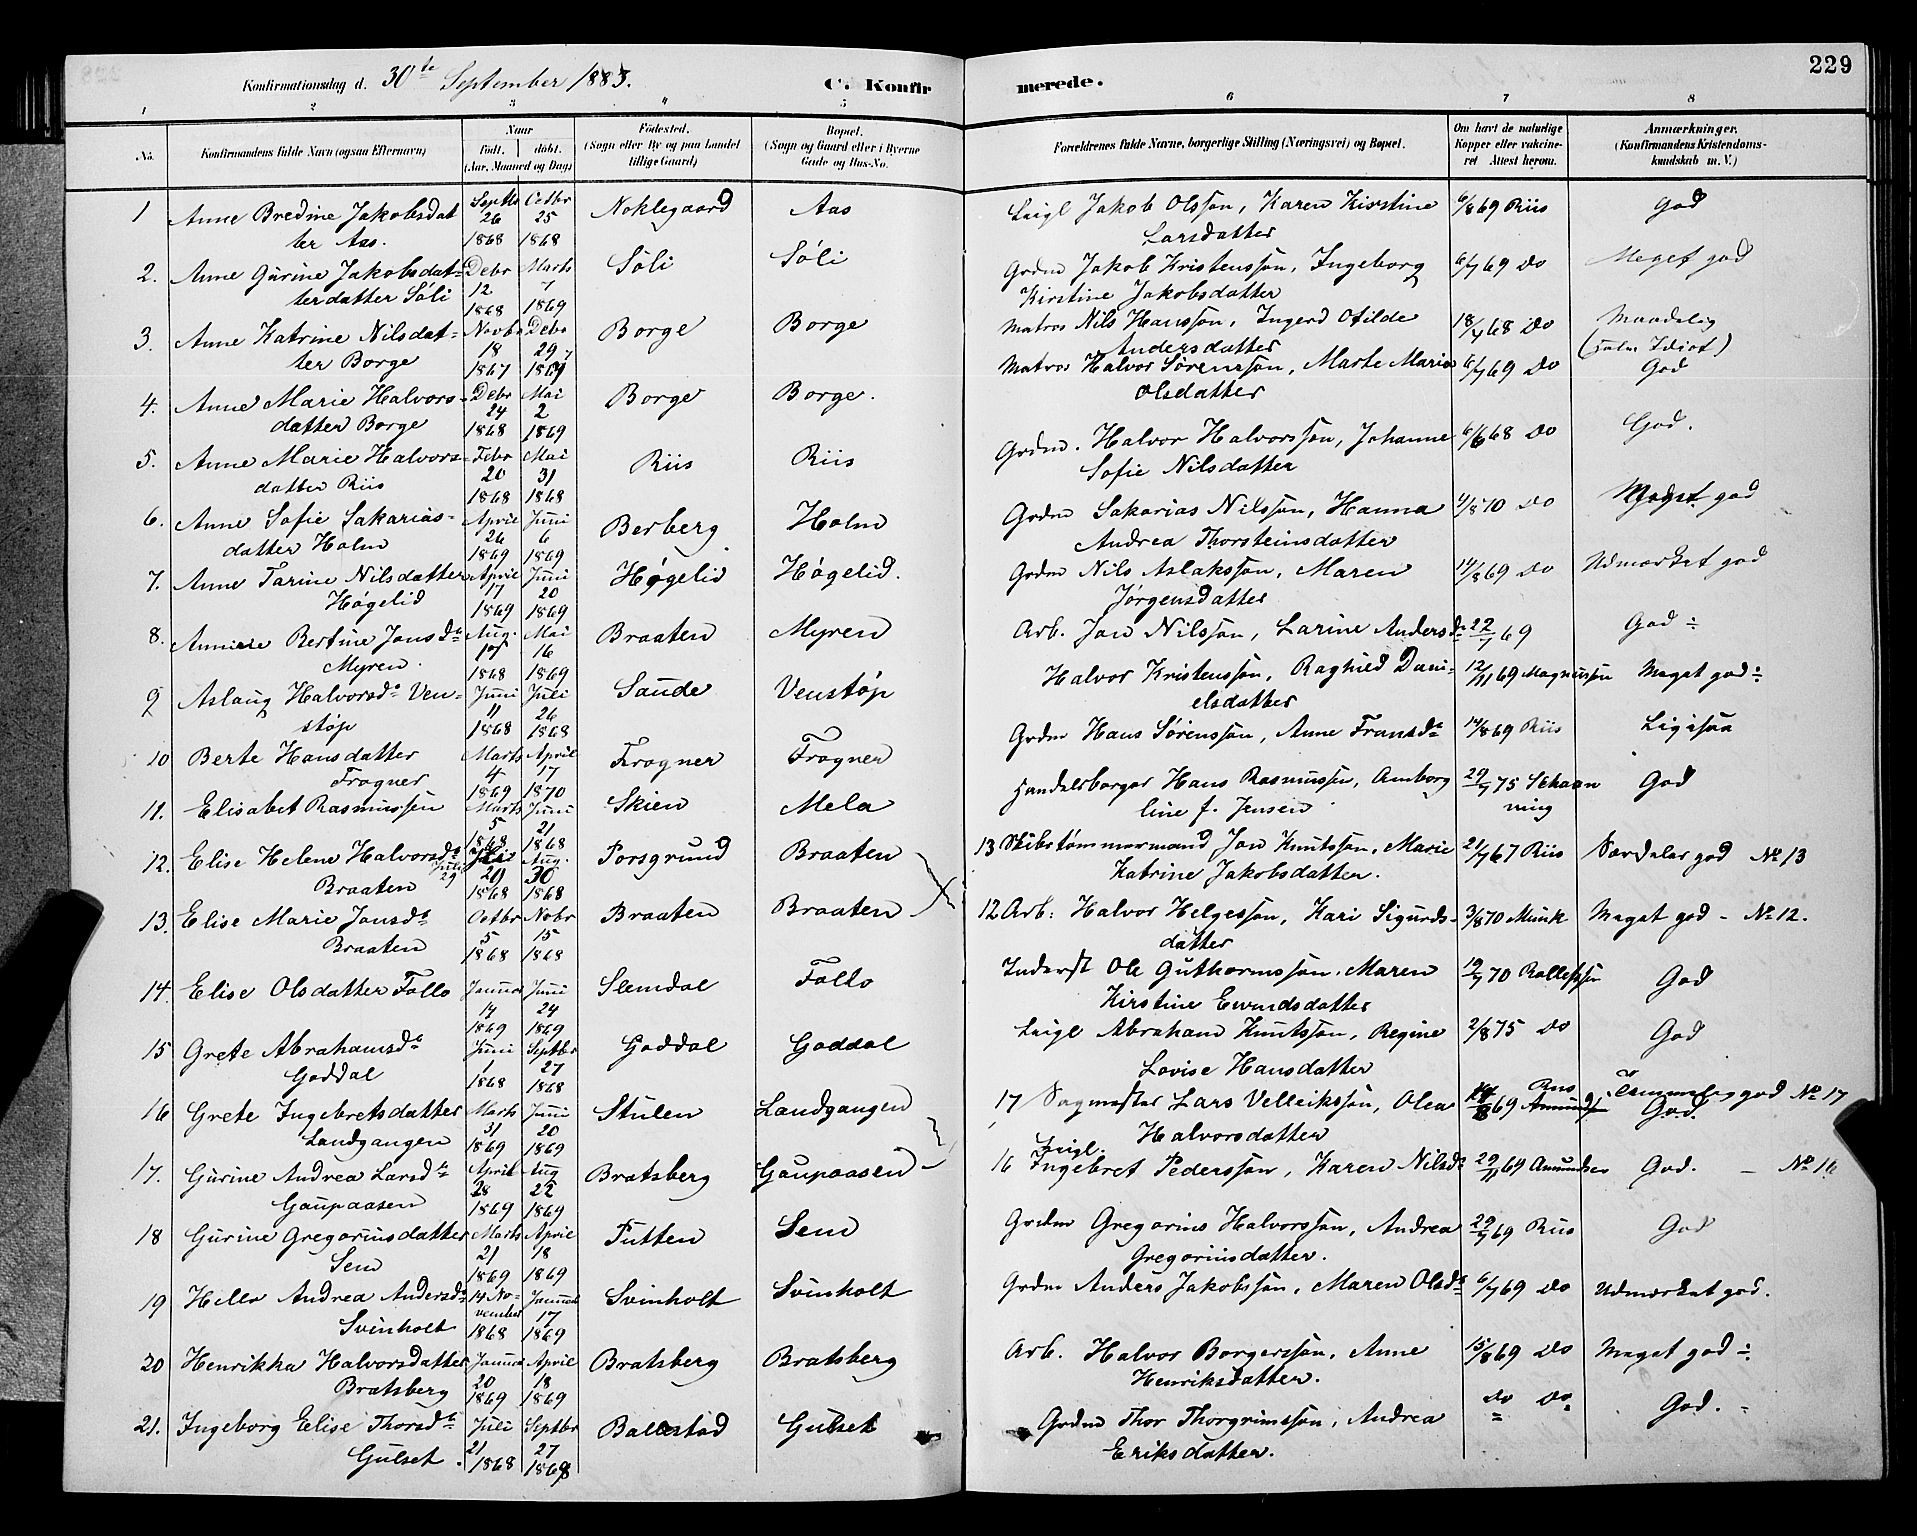 229
Konfirmationsdag d. 30te September 1883. C. Konfirmerede.
1 2 3 4 5 6 7 8
No. Konfirmandens fulde Navn (ogsaa Efternavn) Naar født. døbt. (Aar, Maaned og Dag) Fødested. (Sogn eller By og paa Landet tillige Gaard) Bopæl. (Sogn og Gaard eller i Byerne Gade og Hus-No. Forældrenes fulde Navne, borgerlige Stilling (Næringsvei) og Bopæl. Om havt de naturlige Kopper eller vakcineret Attest herom. Anmærkninger. (Konfirmandens Kristendomskundskab m. V.)
1 Anne Bredine Jakobsdatter Aas. Septbr 26 1868 Octbr 25 1868 Noklegaard Aas Leigl Jakob Olsson, Karen Kirstine Larsdatter 6/8 69 Riis God
2. Anne Gurine Jakobsdatterdatter Sóli Debr 12 1868 Marts 7 1869 Sóli Sóli Grdm Jakob Kristensson, Ingeborg Kirstine Jakobsdatter 6/7 69 Do Meget god
3. Anne Katrine Nilsdatter Borge Novbr 18 1867 Debr 29 1867 Borge Borge Matros Nils Hansson, Ingerd Otilde Andersdatter 18/7 68 Do Maadelig (halv Idiot)
4. Anne Marie Halvorsdatter Borge Debr 24 1868 Mai 2 1869 Borge Borge. Matros Halvor Sørensson, Marte Maria Olsdatter 6/7 69 Do God
5. Anne Marie Halvorsdatter Riis Febr 20 1868 Mai 31 1868 Riis Riis Grdm. Halvor Halvorsson, Johanne Sofie Nilsdatter 6/6 68 Do God.
6. Anne Sofie Sakariasdatter Holm April 26 1869 Juni 6 1869 Berberg Holm Grdm Sakarias Nilsson, Hanna Andrea Thorsteinsdatter 4/8 70 Do Meget god
7. Anne Tarine Nilsdatter Høgelid April 17 1869 Juni 20 1869 Høgelid Høgelid. Grdm Nils Aslaksson, Maren Jørgensdatter 14/8 69 Do Udmærket god
8. Bertine Jonsdr Myren. Aug. 1868 Mai 16 1869 Braaten Myren Arb. Jon Nilsson, Larine Andersdr 22/7 69 God ÷
9 Aslaug Halvorsdr Venstøp Juni 11 1868 Juli 26 1868 Saude Venstøp Halvor Kristensson, Raghild Danielsdatter 12/11 69 Magnussen Meget god ÷
10 Berte Hansdatter Frogner Marts 4 1869 April 17 1870 Frogner Frogner Grdm Hans Sørensson, Anne Fransdr 14/8 69 Riis Ligesaa
11. Elisabet Rasmussen Marts 5 1868 Juni 21 1868 Skien Mela Handelsborger Hans Rasmussen, Amborg line f. Jensen 29/7 75 Schaanning God
12. Elise Helene Halvorsdr Braaten Juni 29 1868 Aug. 30 1868 Porsgrund Braaten 13 Skibstømmermand Jon Knutsson, Marie Katrine Jakobsdatter. 21/7 67 Riis Særdeles god No 13
13. Elise Marie Jonsdr Braaten Octbr 5 1868 Nobr 15 1868 Braaten Braaten 12 Arb: Halvor Helgesson, Kari Sigurdsdatter 3/8 70 Munk Meget god - No 12.
14. Elise Olsdatter Follo Januar 14 1869 Juni 24 1869 Slemdal Follo Inderst Ole Guthormsson, Maren Kirstine Evendsdatter 19/7 70 Rollefsen God
15 Grete Abrahamsdr Goddal Juni 1 1868 Septbr 27 1868 Goddal Goddal Leigl Abraham Knutsson, Regine Lovise Hansdatter 2/8 75 Do God
16 Grete Ingebretsdatter Landgangen Marts 31 1869 Juni 20 1869 Stulen Landgangen 17 Sagmester Lars Velleiksson, Olea Halvorsdatter 14/8 69 Riis Temmelig god No 17
17. Gurine Andrea Larsdr Gaupaasen April 28 1869 Aug 22 1869 Bratsberg Gaupaasen 16 Leigl. Ingebret Pedersson, Karen Nilsdr 29/11 69 Amundsen God. - No 16
18 Gurine Gregoriusdatter Sem Marts 21 1869 April 18 1869 Tutten Sem Grdm Gregorius Halvorsson, Andrea Gregoriusdatter. 29/7 69 Riis God
19 Helle Andrea Andersdr Svinholt 14 November 1868 Januar 17 1869 Svinholt Svinholt Grdm Anders Jakobsson, Maren Olsdr 6/7 69 Do Udmærket god.
20 Henrikka Halvorsdatter Bratsberg Januar 20 1869 April 18 1869 Bratsberg Bratsberg Arb. Halvor Borgersson, Anne Henriksdatter. 15/8 69 Do Meget god ÷
21. Ingeborg Elise Thorsdr Gulset. Juli 21 1868 Septbr 27 1868 Ballestad Gulset Grdm Thor Thorgrimsson, Andrea Eriksdatter. Do Do God. -